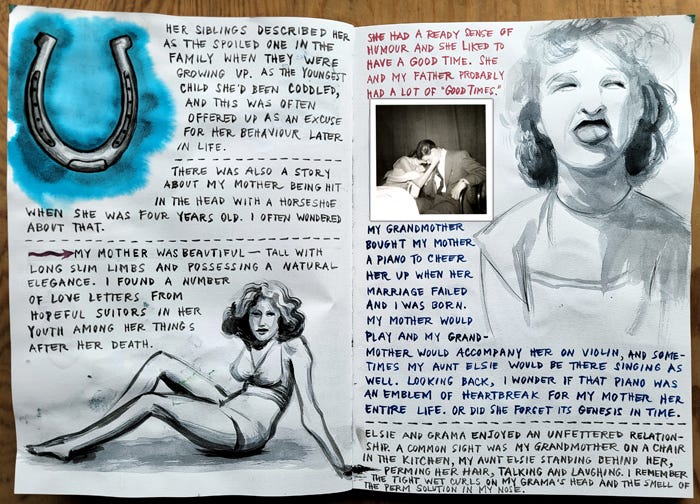 HER SIBLINGS DESCRIBED HER
AS THE SPOILED ONE IN THE
FAMILY WHEN THEY WERE
GROWING UP. AS THE YOUNGEST
CHILD SHE'D BEEN CODDLED,
AND THIS WAS OFTEN
OFFERED UP AS AN EXCUSE
FOR HER BEHAVIOUR LATER
IN LIFE.
THERE WAS ALSO A STORY
ABOUT MY MOTHER BEING HIT
IN THE HEAD WITH A HORSESHOE
WHEN SHE WAS FOUR YEARS OLD. I OFTEN WONDERED
ABOUT THAT.
MY MOTHER WAS BEAUTIFUL — TALL WITH
LONG SLIM LIMBS AND POSSESSING A NATURAL
ELEGANCE. I FOUND A NUMBER
OF LOVE LETTERS FROM
HOPEFUL SUITORS IN HER
YOUTH AMONG HER THINGS
AFTER HER DEATH.
SHE HAD A READY SENSE OF
HUMOUR AND SHE LIKED TO
HAVE A GOOD TIME. SHE
AND MY FATHER PROBABLY
HAD A LOT OF "GOOD TIMES."
MY GRANDMOTHER
BOUGHT MY MOTHER
A PIANO TO CHEER
HER UP WHEN HER
MARRIAGE FAILED
AND I WAS BORN.
MY MOTHER WOULD
PLAY AND MY GRAND-
MOTHER WOULD ACCOMPANY HER ON VIOLIN, AND SOME-
TIMES MY AUNT ELSIE WOULD BE THERE SINGING AS
WELL. LOOKING BACK, I WONDER IF THAT PIANO WAS
AN EMBLEM OF HEARTBREAK FOR MY MOTHER HER
ENTIRE LIFE. OR DID SHE FORGET ITS GENESIS IN TIME.
ELSIE AND GRAMA ENJOYED AN UNFETTERED RELATION-
SHIP. A COMMON SIGHT WAS MY GRANDMOTHER ON A CHAIR
IN THE KITCHEN, MY AUNT ELSIE STANDING BEHIND HER,
PERMING HER HAIR, TALKING AND LAUGHING. I REMEMBER
THE TIGHT WET CURLS ON MY GRAMA'S HEAD AND THE SMELL OF
THE PERM SOLUTION IN MY NOSE.